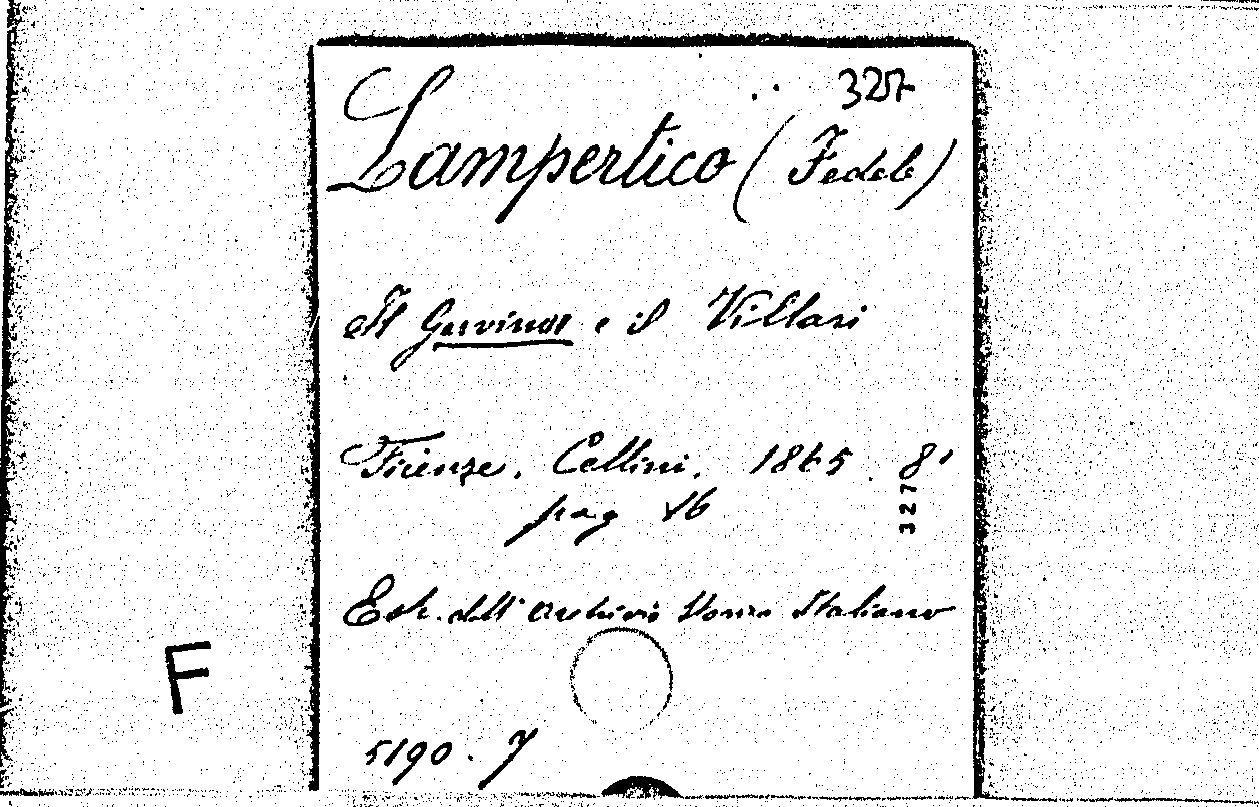 327
Lampertico (Fedele)
Il Gervinus e il Villari
Firenze. Cellini. 1865. 8°
pag 16
3278
Estr. dall'Archivio Storico Italiano
F
5190. 7